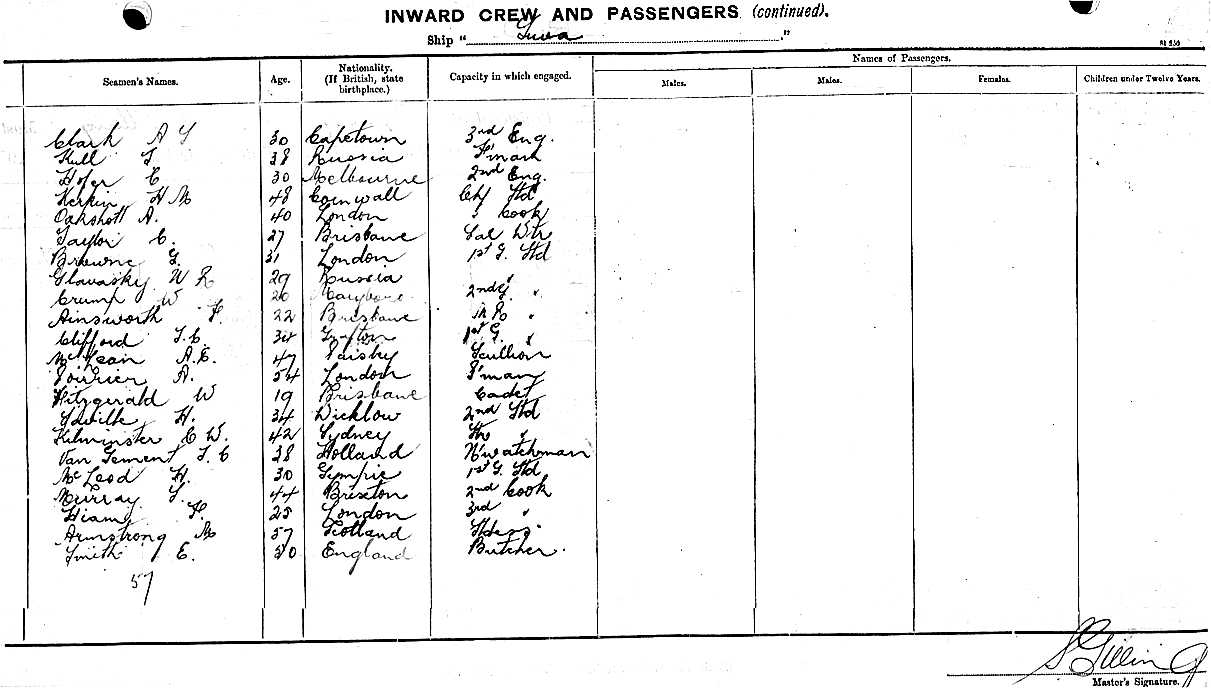 INWARD CREW AND PASSENGERS (continued).
Ship " Suva ."
Seamen's Names. Age. Nationality. (If British, state birthplace.) Capacity in which engaged. Names of Passengers.
Males. Males. Females. Children under Twelve Years.
Clark A 30 Capetown 3rd Eng.
Kull 38 Russia F'man
Hofer C 30 Melbourne 2nd Eng.
Kerkin H M 48 Cornwall Chf Std
Oakshott A. 40 London " Cook
Taylor C. 27 Brisbane Sal Wtr
Browne G. 31 London 1st G. Std
Glavasky W R 29 Russia "
Crump W 20 2nd G. "
Ainsworth F. 22 Brisbane "
Clifford J. C. Grafton 1st G. "
McLean A. E. 47 Paisley Scullion
Poirrier A. 54 London F'man
Fitzgerald W 19 Brisbane Cadet
H. 34 Wicklow 2nd Std
Kilminster C W. 42 Sydney "
Van Gement J. C 38 Holland N'watchman
McLeod H. 30 Gympie 1st G. Std
Murray J. 44 Brixton 2nd Cook
Hiams F. 25 London 3rd "
Armstrong M 57 Scotland Stdess
Smith E. 50 England Butcher.
57
Master's Signature.